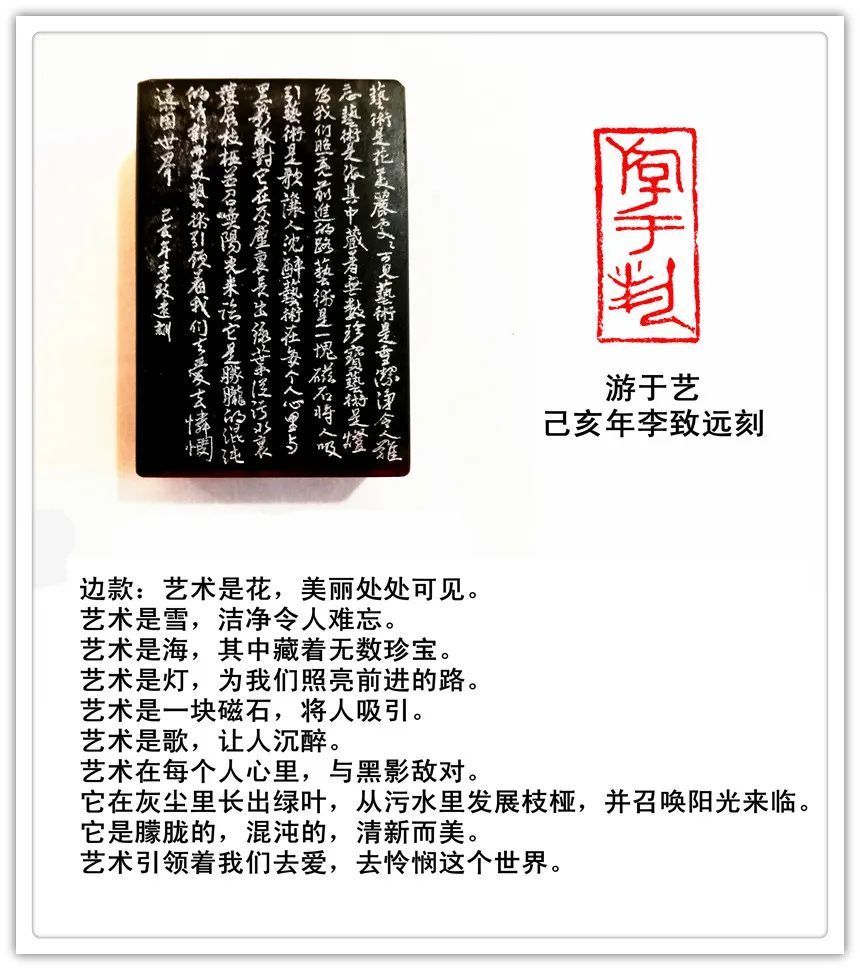 藝術是花美麗處〻可見藝術是雪潔淨令人難
忘藝術是海其中藏着無數珍寶藝術是燈
為我們照亮前進的路藝術是一塊磁石將人吸
引藝術是歌讓人沈醉藝術在每个人心里与
黑影敵對它在灰塵裏長出綠葉從污水裏
發展枝椏並召喚陽光来临它是朦朧的混沌
的清新而美藝術引領着我们去愛去憐憫
這個世界 己亥年李致遠刻
游于艺
己亥年李致远刻
边款：艺术是花，美丽处处可见。
艺术是雪，洁净令人难忘。
艺术是海，其中藏着无数珍宝。
艺术是灯，为我们照亮前进的路。
艺术是一块磁石，将人吸引。
艺术是歌，让人沉醉。
艺术在每个人心里，与黑影敌对。
它在灰尘里长出绿叶，从污水里发展枝桠，并召唤阳光来临。
它是朦胧的，混沌的，清新而美。
艺术引领着我们去爱，去怜悯这个世界。